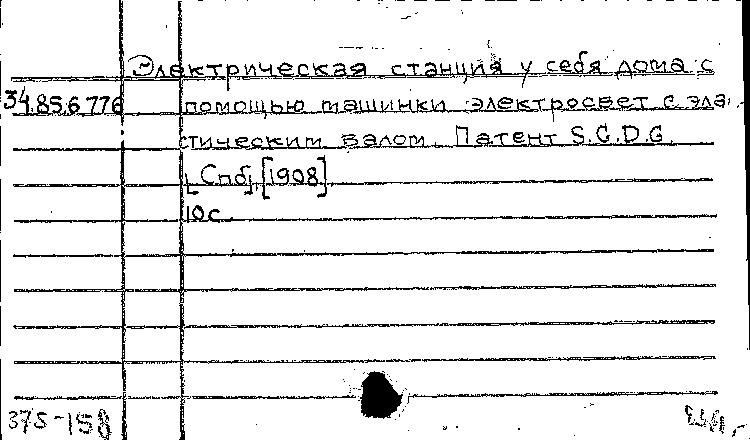 Электрическая станция у себя дома с
34.85.6.776 помощью машинки электросвет с эла-
стическим валом. Патент S.G.D.G.
[Спб], [1908]
10 с.
375-158